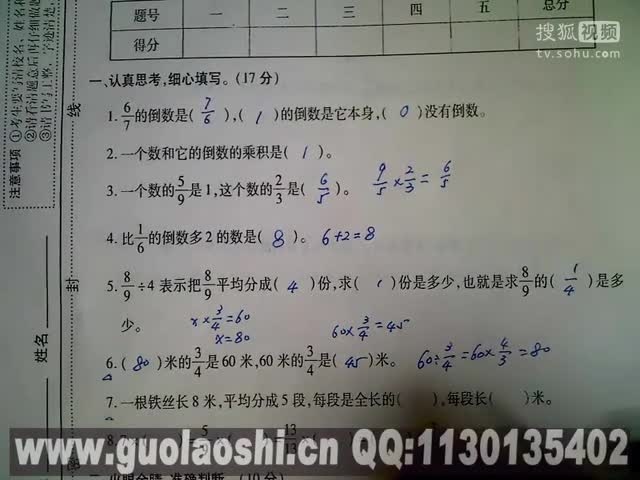 题号 一 二 三 四 五 总分
得分
搜狐视频
tv.sohu.com
注意事项 ①考生要写清校名、姓名和
②请看清题意后再仔细做题
③请书写工整、字迹清楚
线
封
密
姓名
一、认真思考,细心填写。(17 分)
1. 6/7的倒数是( 7/6 ),( 1 )的倒数是它本身,( 0 )没有倒数。
2. 一个数和它的倒数的乘积是( 1 )。
3. 一个数的5/9是1,这个数的2/3是( 6/5 )。 9/5×2/3=6/5
4. 比1/6的倒数多2的数是( 8 )。 6+2=8
5. 8/9÷4 表示把8/9平均分成( 4 )份,求( 1 )份是多少,也就是求8/9的( 1/4 )是多
少。 x×3/4=60 60×3/4=45
x=80
6. ( 80 )米的3/4是 60 米,60 米的3/4是( 45 )米。 60÷3/4=60×4/3=80
7. 一根铁丝长 8 米,平均分成 5 段,每段是全长的( ),每段长( )米。
www.guolaoshi.cn QQ:1130135402